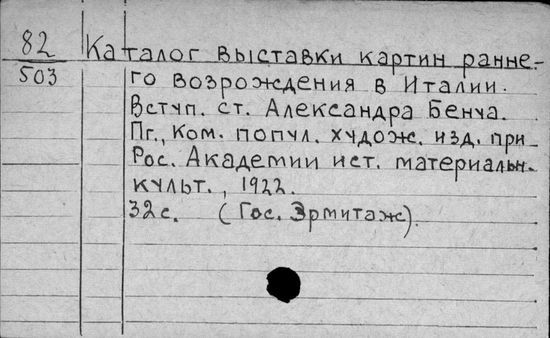 82
503
Каталог выставки картин ранне-
го возрождения в Италии.
Вступ. ст. Александра Бенуа.
Пг., Ком. попул. худож. изд. при
Рос. Академии ист. материальн.
культ., 1922.
32 с. (Гос. Эрмитаж).